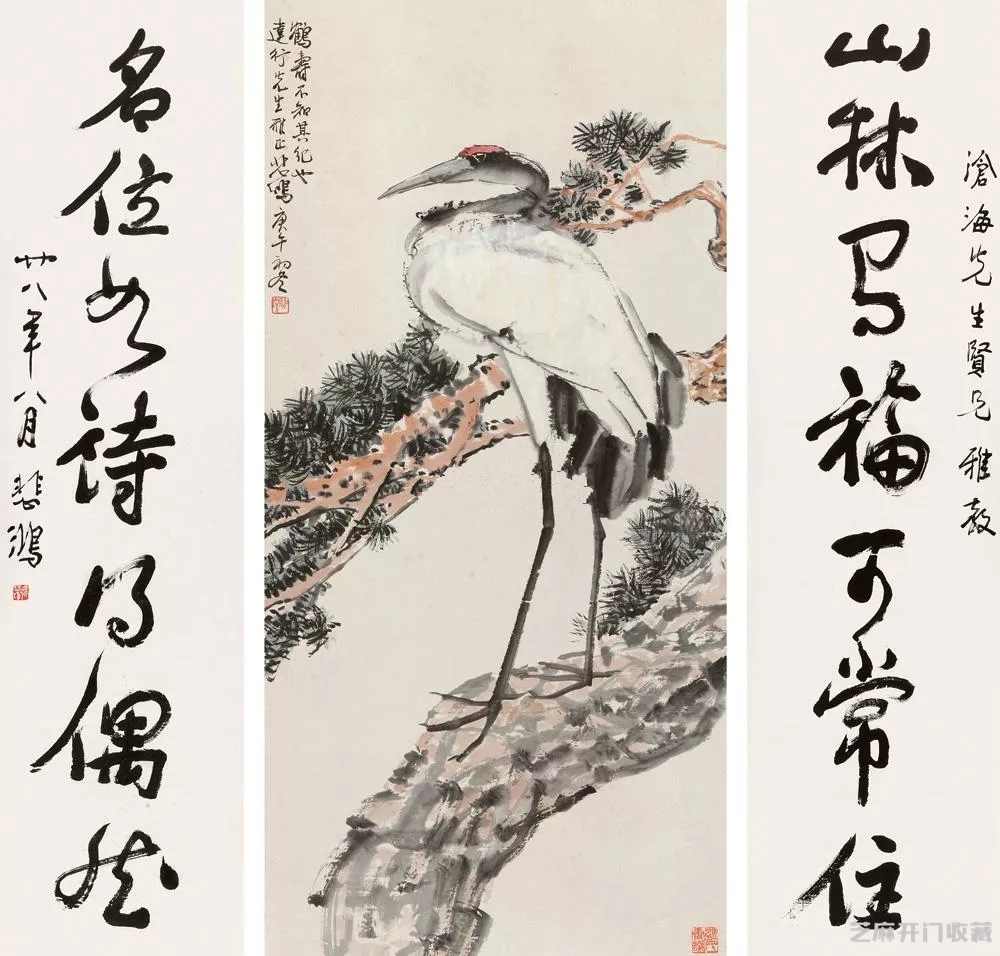 滄海先生賢兄雅教
山林為福可常住
鶴壽不知其紀也
遠行先生雅正 悲鴻 庚午初冬
名位如詩得偶然
廿八年八月 悲鴻
芝麻开门收藏